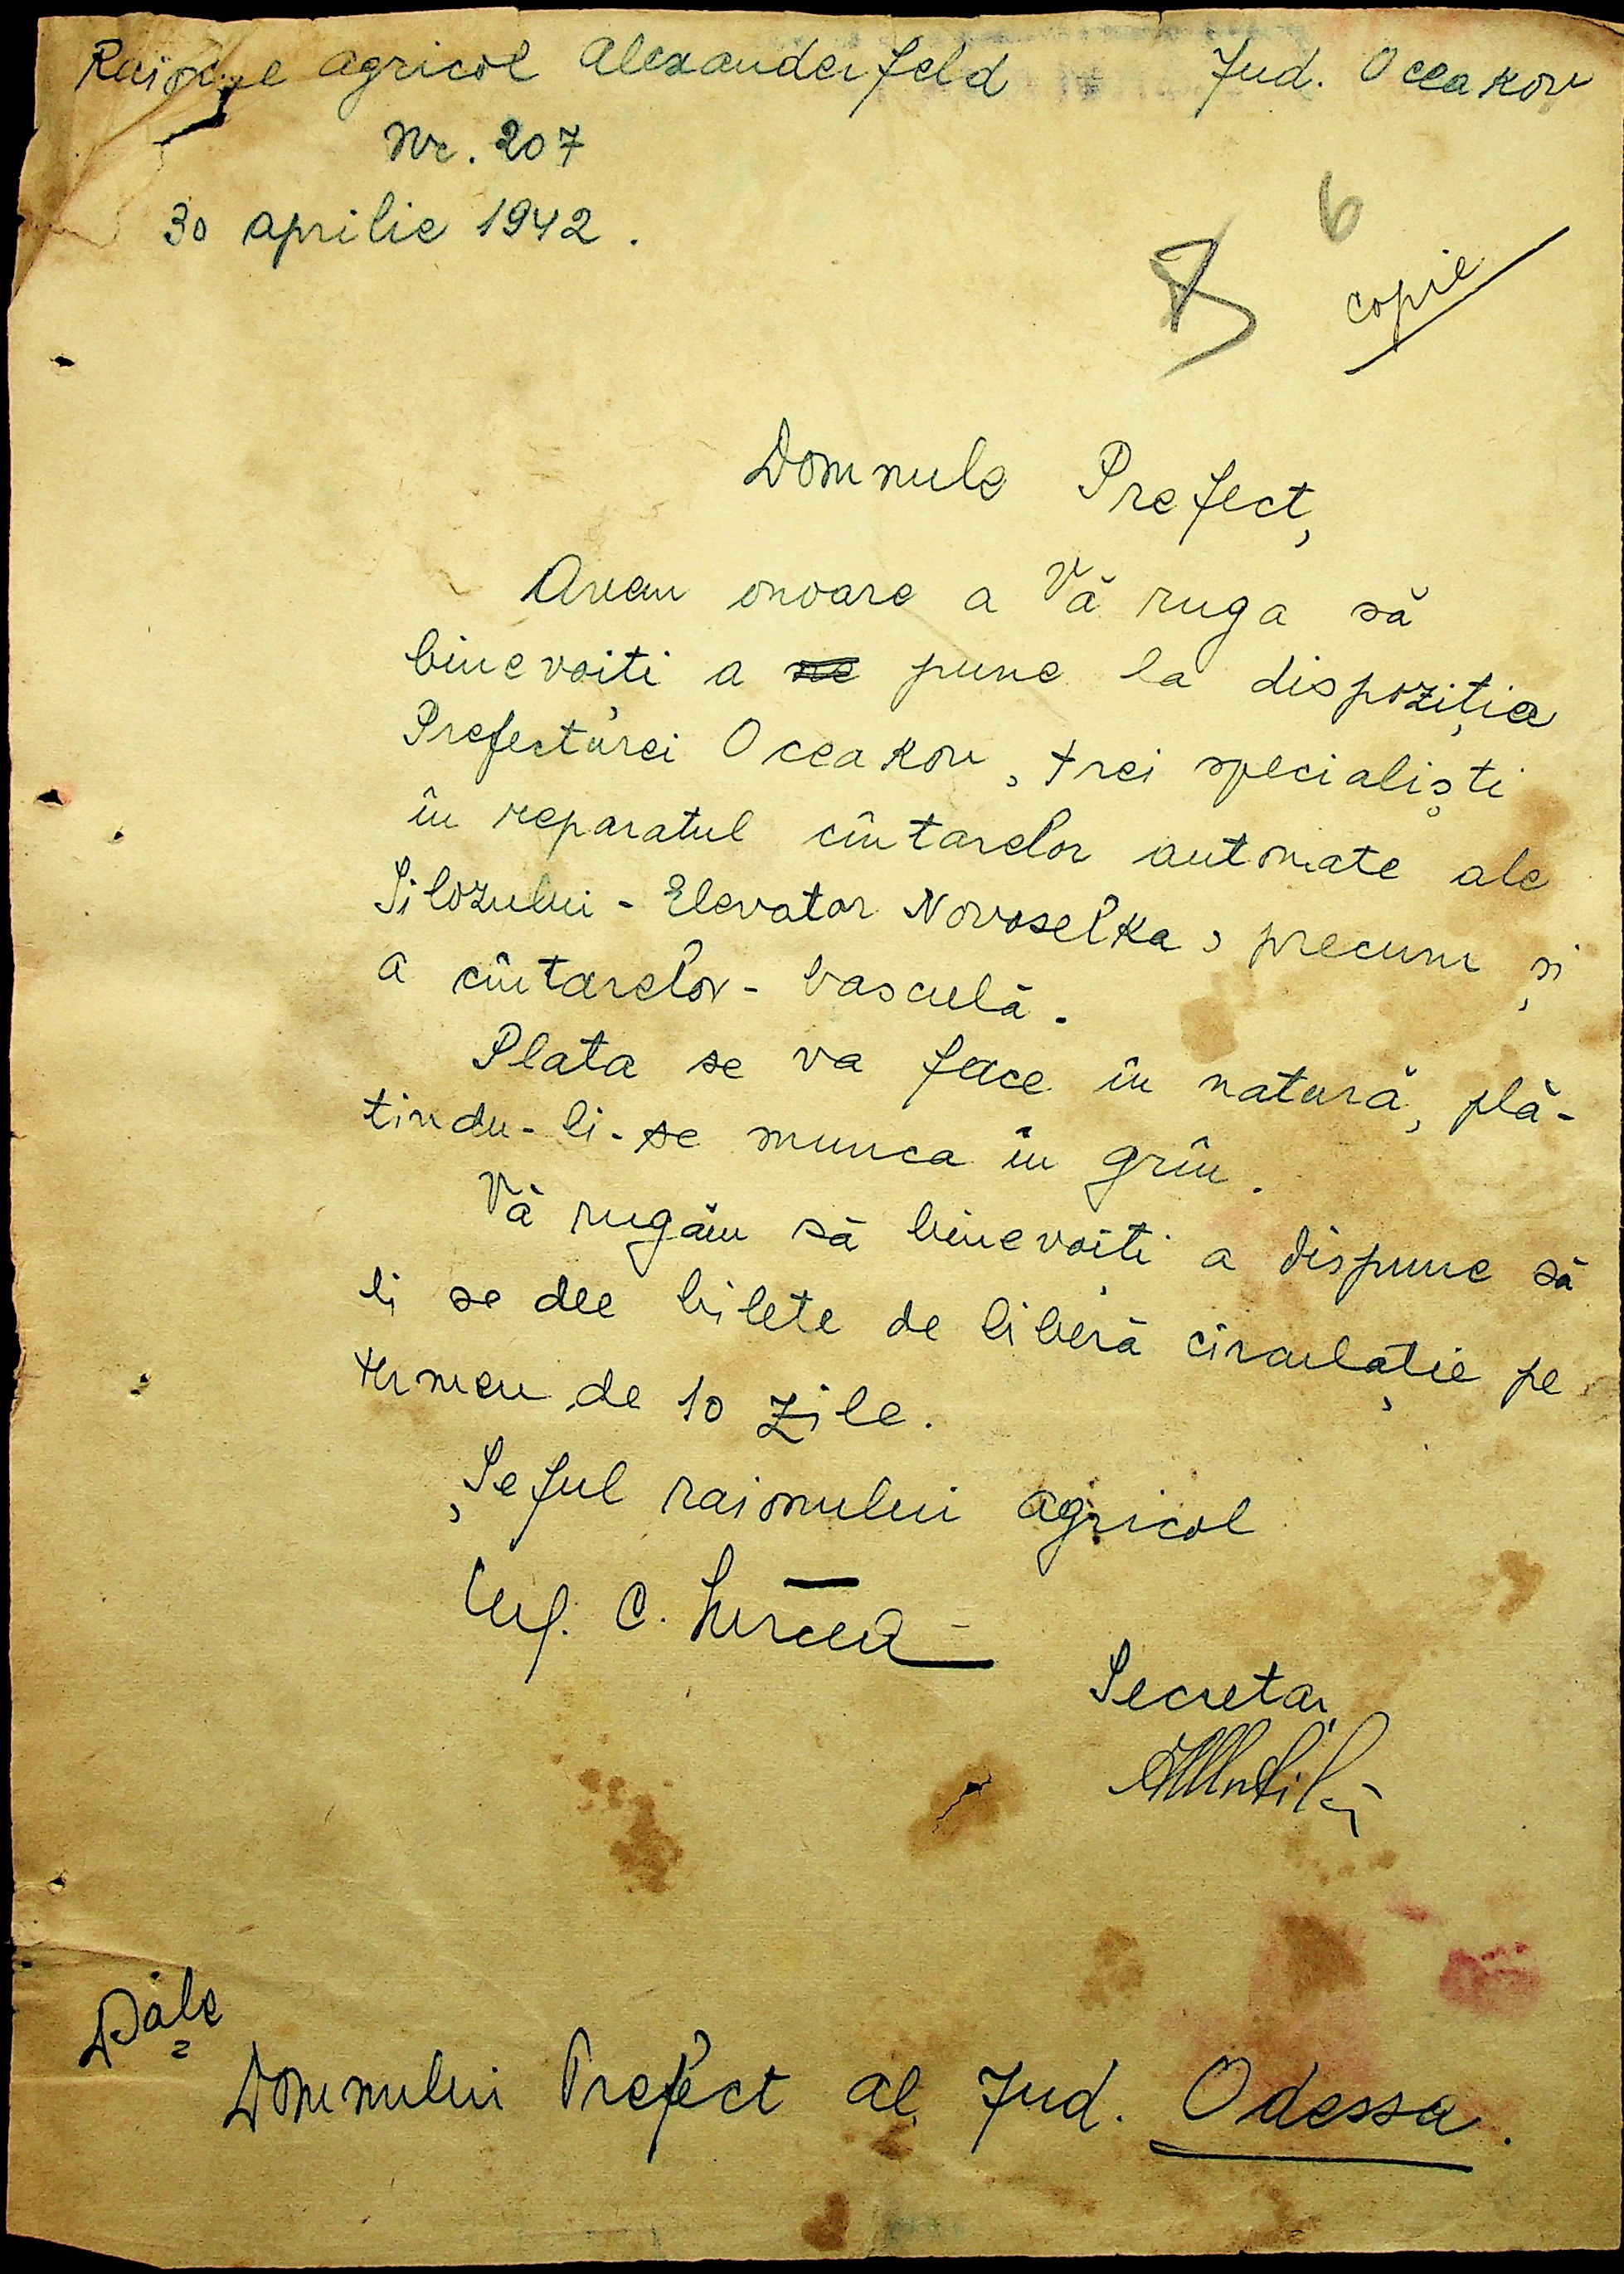 agricol Alexanderfeld Jud. Oceakov
Nr. 207
30 aprilie 1942.
6
copie
Domnule Prefect,
Avem onoare a Vă ruga să
binevoiți a ne pune la dispoziția
Prefecturei Oceakov, trei specialiști
în reparatul cîntarelor automate ale
Silozului - Elevator Novoselka, precum și
a cîntarelor - basculă.
Plata se va face în natură, plă-
tindu-li-se munca în grîu.
Vă rugăm să binevoiți a dispune să
li se dee bilete de liberă circulație pe
termen de 10 zile.
Șeful raionului agricol
C.
Secretar,
D sale
Domnului Prefect al Jud. Odessa.